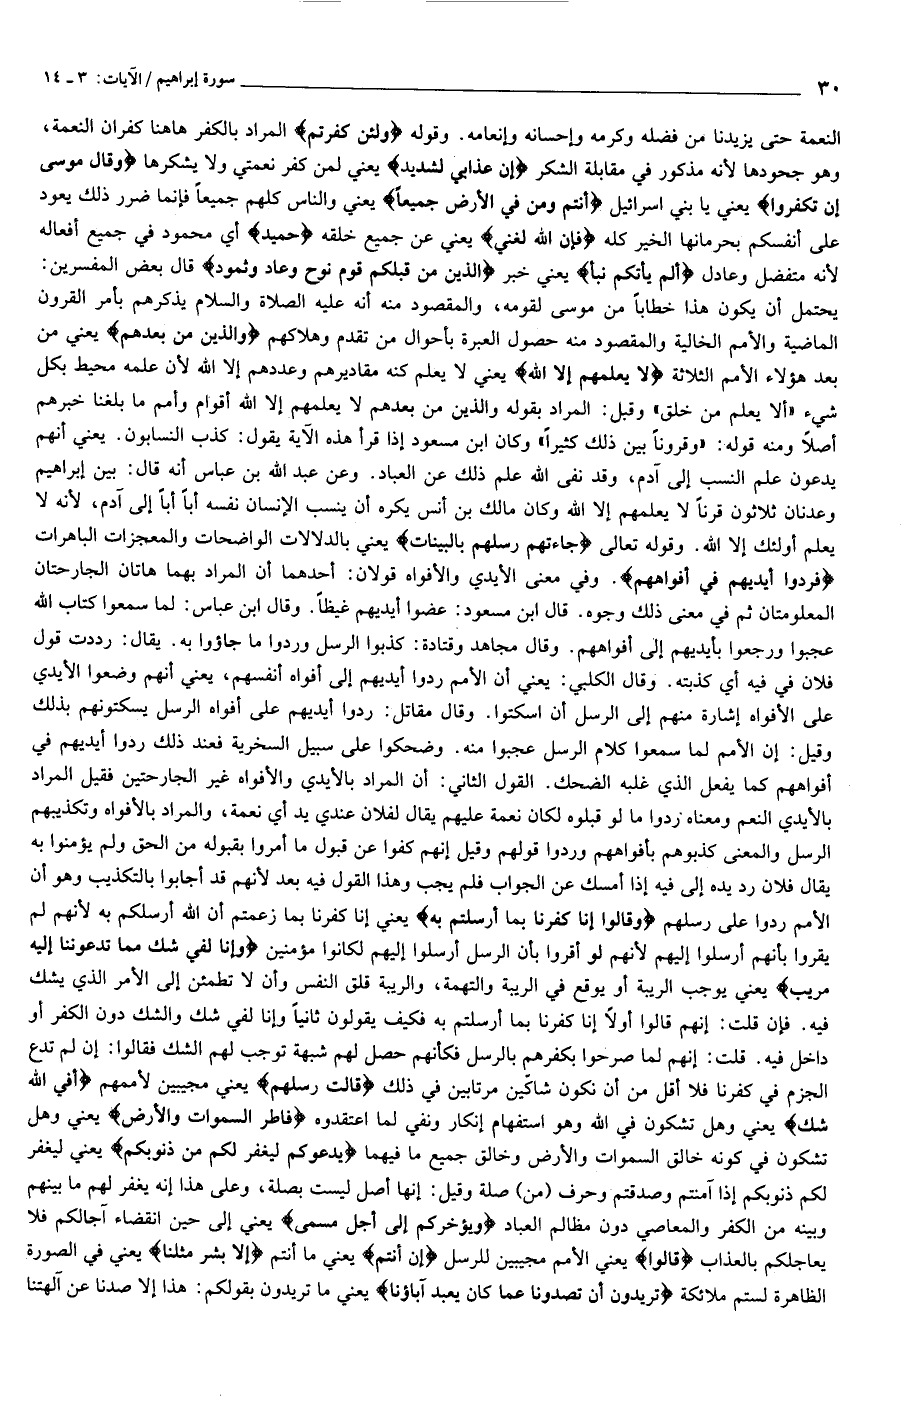 ٣٠ سورة إبراهيم / الآيات: ٣ ـ ١٤
النعمة حتى يزيدنا من فضله وكرمه وإحسانه وإنعامه. وقوله ﴿ولئن كفرتم﴾ المراد بالكفر هاهنا كفران النعمة،
وهو جحودها لأنه مذكور في مقابلة الشكر ﴿إن عذابي لشديد﴾ يعني لمن كفر نعمتي ولا يشكرها ﴿وقال موسى
إن تكفروا﴾ يعني يا بني اسرائيل ﴿أنتم ومن في الأرض جميعاً﴾ يعني والناس كلهم جميعاً فإنما ضرر ذلك يعود
على أنفسكم بحرمانها الخير كله ﴿فإن الله لغني﴾ يعني عن جميع خلقه ﴿حميد﴾ أي محمود في جميع أفعاله
لأنه متفضل وعادل ﴿ألم يأتكم نبأ﴾ يعني خبر ﴿الذين من قبلكم قوم نوح وعاد وثمود﴾ قال بعض المفسرين:
يحتمل أن يكون هذا خطاباً من موسى لقومه، والمقصود منه أنه عليه الصلاة والسلام يذكرهم بأمر القرون
الماضية والأمم الخالية والمقصود منه حصول العبرة بأحوال من تقدم وهلاكهم ﴿والذين من بعدهم﴾ يعني من
بعد هؤلاء الأمم الثلاثة ﴿لا يعلمهم إلا الله﴾ يعني لا يعلم كنه مقاديرهم وعددهم إلا الله لأن علمه محيط بكل
شيء «ألا يعلم من خلق» وقيل: المراد بقوله والذين من بعدهم لا يعلمهم إلا الله أقوام وأمم ما بلغنا خبرهم
أصلاً ومنه قوله: «وقروناً بين ذلك كثيراً» وكان ابن مسعود إذا قرأ هذه الآية يقول: كذب النسابون. يعني أنهم
يدعون علم النسب إلى آدم، وقد نفى الله علم ذلك عن العباد. وعن عبد الله بن عباس أنه قال: بين إبراهيم
وعدنان ثلاثون قرناً لا يعلمهم إلا الله وكان مالك بن أنس يكره أن ينسب الإنسان نفسه أباً أباً إلى آدم، لأنه لا
يعلم أولئك إلا الله. وقوله تعالى ﴿جاءتهم رسلهم بالبينات﴾ يعني بالدلالات الواضحات والمعجزات الباهرات
﴿فردوا أيديهم في أفواههم﴾. وفي معنى الأيدي والأفواه قولان: أحدهما أن المراد بهما هاتان الجارحتان
المعلومتان ثم في معنى ذلك وجوه. قال ابن مسعود: عضوا أيديهم غيظاً. وقال ابن عباس: لما سمعوا كتاب الله
عجبوا ورجعوا بأيديهم إلى أفواههم. وقال مجاهد وقتادة: كذبوا الرسل وردوا ما جاؤوا به. يقال: رددت قول
فلان في فيه أي كذبته. وقال الكلبي: يعني أن الأمم ردوا أيديهم إلى أفواه أنفسهم، يعني أنهم وضعوا الأيدي
على الأفواه إشارة منهم إلى الرسل أن اسكتوا. وقال مقاتل: ردوا أيديهم على أفواه الرسل يسكتونهم بذلك
وقيل: إن الأمم لما سمعوا كلام الرسل عجبوا منه. وضحكوا على سبيل السخرية فعند ذلك ردوا أيديهم في
أفواههم كما يفعل الذي غلبه الضحك. القول الثاني: أن المراد بالأيدي والأفواه غير الجارحتين فقيل المراد
بالأيدي النعم ومعناه ردوا ما لو قبلوه لكان نعمة عليهم يقال لفلان عندي يد أي نعمة، والمراد بالأفواه وتكذيبهم
الرسل والمعنى كذبوهم بأفواههم وردوا قولهم وقيل إنهم كفوا عن قبول ما أمروا بقبوله من الحق ولم يؤمنوا به
يقال فلان رد يده إلى فيه إذا أمسك عن الجواب فلم يجب وهذا القول فيه بعد لأنهم قد أجابوا بالتكذيب وهو أن
الأمم ردوا على رسلهم ﴿وقالوا إنا كفرنا بما أرسلتم به﴾ يعني إنا كفرنا بما زعمتم أن الله أرسلكم به لأنهم لم
يقروا بأنهم أرسلوا إليهم لأنهم لو أقروا بأن الرسل أرسلوا إليهم لكانوا مؤمنين ﴿وإنا لفي شك مما تدعوننا إليه
مريب﴾ يعني يوجب الريبة أو يوقع في الريبة والتهمة، والريبة قلق النفس وأن لا تطمئن إلى الأمر الذي يشك
فيه. فإن قلت: إنهم قالوا أولاً إنا كفرنا بما أرسلتم به فكيف يقولون ثانياً وإنا لفي شك والشك دون الكفر أو
داخل فيه. قلت: إنهم لما صرحوا بكفرهم بالرسل فكأنهم حصل لهم شبهة توجب لهم الشك فقالوا: إن لم تدع
الجزم في كفرنا فلا أقل من أن نكون شاكّين مرتابين في ذلك ﴿قالت رسلهم﴾ يعني مجيبين لأممهم ﴿أفي الله
شك﴾ يعني وهل تشكون في الله وهو استفهام إنكار ونفي لما اعتقدوه ﴿فاطر السموات والأرض﴾ يعني وهل
تشكون في كونه خالق السموات والأرض وخالق جميع ما فيهما ﴿يدعوكم ليغفر لكم من ذنوبكم﴾ يعني ليغفر
لكم ذنوبكم إذا آمنتم وصدقتم وحرف (من) صلة وقيل: إنها أصل ليست بصلة، وعلى هذا إنه يغفر لهم ما بينهم
وبينه من الكفر والمعاصي دون مظالم العباد ﴿ويؤخركم إلى أجل مسمى﴾ يعني إلى حين انقضاء آجالكم فلا
يعاجلكم بالعذاب ﴿قالوا﴾ يعني الأمم مجيبين للرسل ﴿إن أنتم﴾ يعني ما أنتم ﴿إلا بشر مثلنا﴾ يعني في الصورة
الظاهرة لستم ملائكة ﴿تريدون أن تصدونا عما كان يعبد آباؤنا﴾ يعني ما تريدون بقولكم: هذا إلا صدنا عن آلهتنا